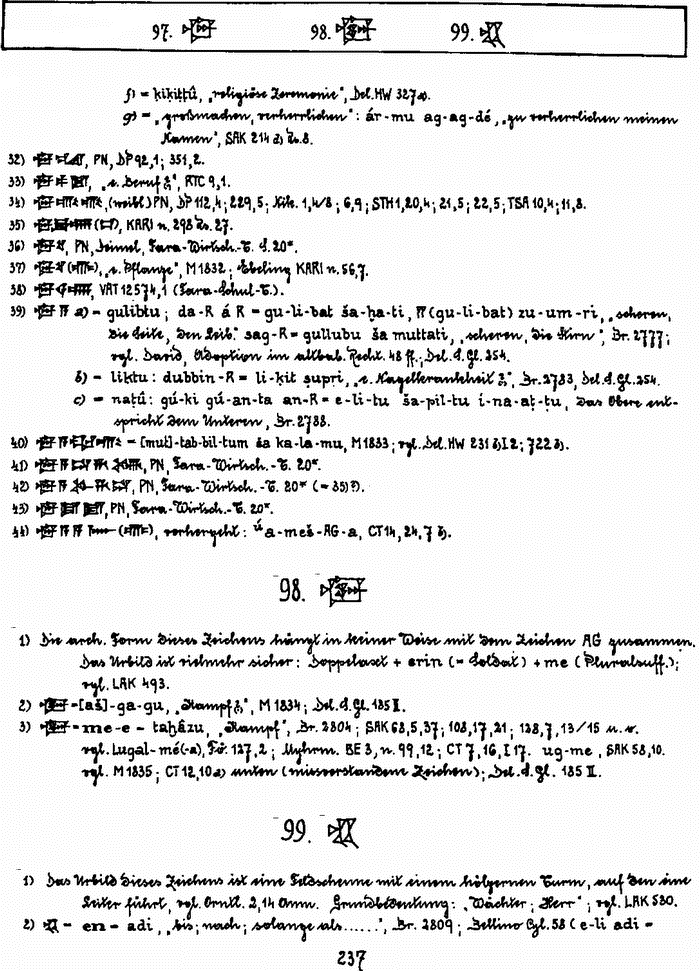 97. 98. 99.
f) = ḳiḳiṭṭû, „religiöse Zeremonie", Del. HW 327a.
g) = „großmachen, verherrlichen": ár-mu ag-ag-dé, „zu verherrlichen meinen
Namen", SAK 214 Zs. 8.
32) , PN, DP 92,1; 351,2.
33) , „e. Beruf", RTC 9,1.
34) , (weibl.) PN, DP 112,4; 229,5; Nik. 1,4/8; 6,9; STH 1,20,4; 21,5; 22,5; TSA 10,4; 11,8.
35) , KARI n. 298 Zs. 27.
36) , PN, Deimel, Fara-Wirtsch.-T. S. 20*.
37) , „e. Pflanze", M 1832; Ebeling KARI n. 56,7.
38) , VAT 12574,1 (Fara-Schul-T.).
39) a) = gulibtu; da-R á R = gu-li-bat ša-ḫa-ti, (gu-li-bat) zu-um-ri, „scheren,
die Seite, den Leib." sag-R = gullubu ša muttati, „scheren, die Stirn", Br. 2777;
vgl. David, Adoption im altbab. Recht. 48 ff.; Del. S. Gl. 254.
b) = liktu: dubbin-R = li-ḳit ṣupri, „e. Nagelkrankheit", Br. 2783, Del. S. Gl. 254.
c) = naṭû: gú-ki gú-an-ta an-R = e-li-tu ša-pil-tu i-na-aṭ-ṭu, das Obere ent-
spricht dem Unteren, Br. 2788.
40) = [mut]-tab-bil-tum ša ka-la-mu, M 1833; vgl. Del. HW 231 b) I 2; 722 b).
41) , PN, Fara-Wirtsch.-T. 20*.
42) , PN, Fara-Wirtsch.-T. 20* (= 35)?).
43) , PN, Fara-Wirtsch.-T. 20*.
44) , vorhergeht: ú a-meš-AG-a, CT 14, 24, 7 b).
98.
1) Die arch. Form dieses Zeichens hängt in keiner Weise mit dem Zeichen AG zusammen.
Das Urbild ist vielmehr sicher: Doppelaxt + erin (= Soldat) + me (Pluralsuff.);
vgl. LAK 493.
2) = [aš]-ga-gu, „Kampf", M 1834; Del. S. Gl. 185 II.
3) = me-e = taḫâzu, „Kampf", Br. 2804; SAK 68,5,37; 108,17,21; 128,7,13/15 u. w.
vgl. Lugal-mé(-a), Fö. 127,2; Myhrm. BE 3, n. 99,12; CT 7, 16, I 17. ug-me, SAK 58,10.
vgl. M 1835; CT 12,10a) unten (missverstandene Zeichen); Del. S. Gl. 185 II.
99.
1) Das Urbild dieses Zeichens ist eine Feldscheune mit einem hölzernen Turm, auf den eine
Leiter führt, vgl. Orntl. 2,14 Anm. Grundbedeutung: „Wächter; Herr"; vgl. LAK 530.
2) = en = adi, „bis; nach; solange als......", Br. 2809; Bellino Cyl. 58 (e-li adi =
237